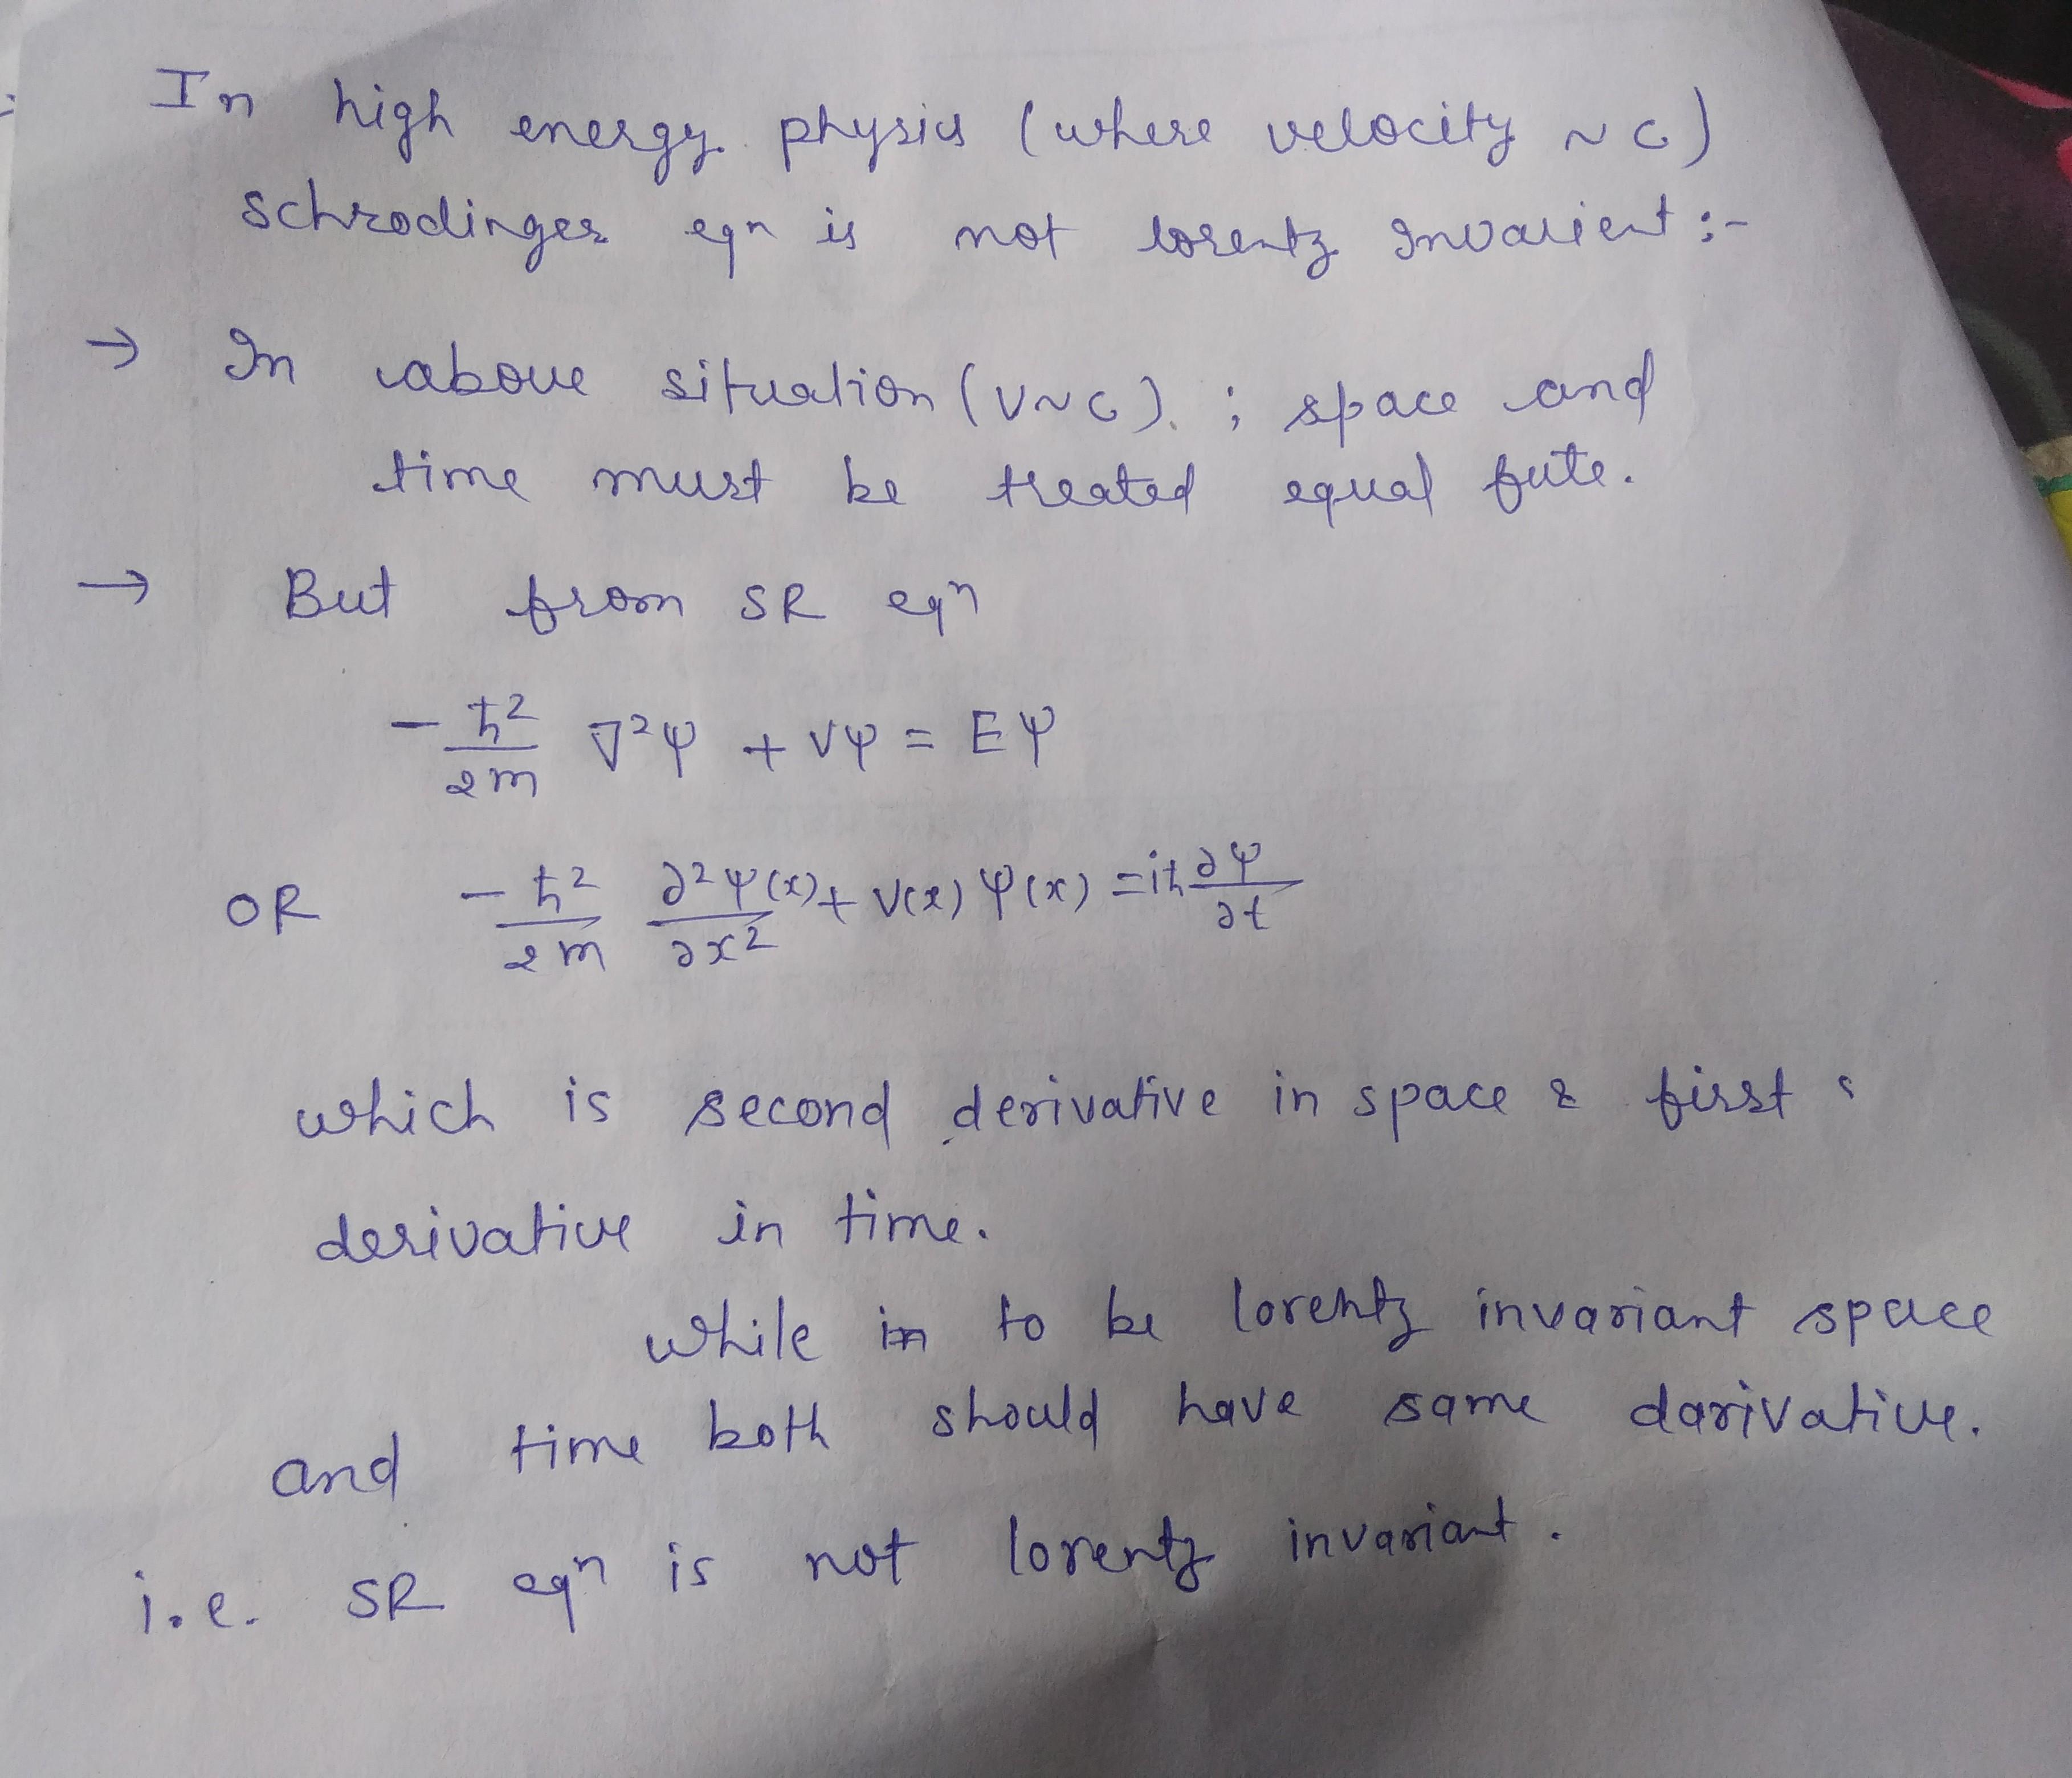 In high energy physics (where velocity ~ c)
schrodinger eqn is not lorentz Invarient :-
→ In above situation (v~c) ; space and
time must be treated equal fute.
→ But from SR eqⁿ
- ħ²/2m ∇²ψ + Vψ = Eψ
OR - ħ²/2m ∂²ψ(x)/∂x² + V(x) ψ(x) = iħ ∂ψ/∂t
which is second derivative in space & first
derivative in time.
while to be lorentz invariant space
and time both should have same darivative.
i.e. SR eqⁿ is not lorentz invariant.